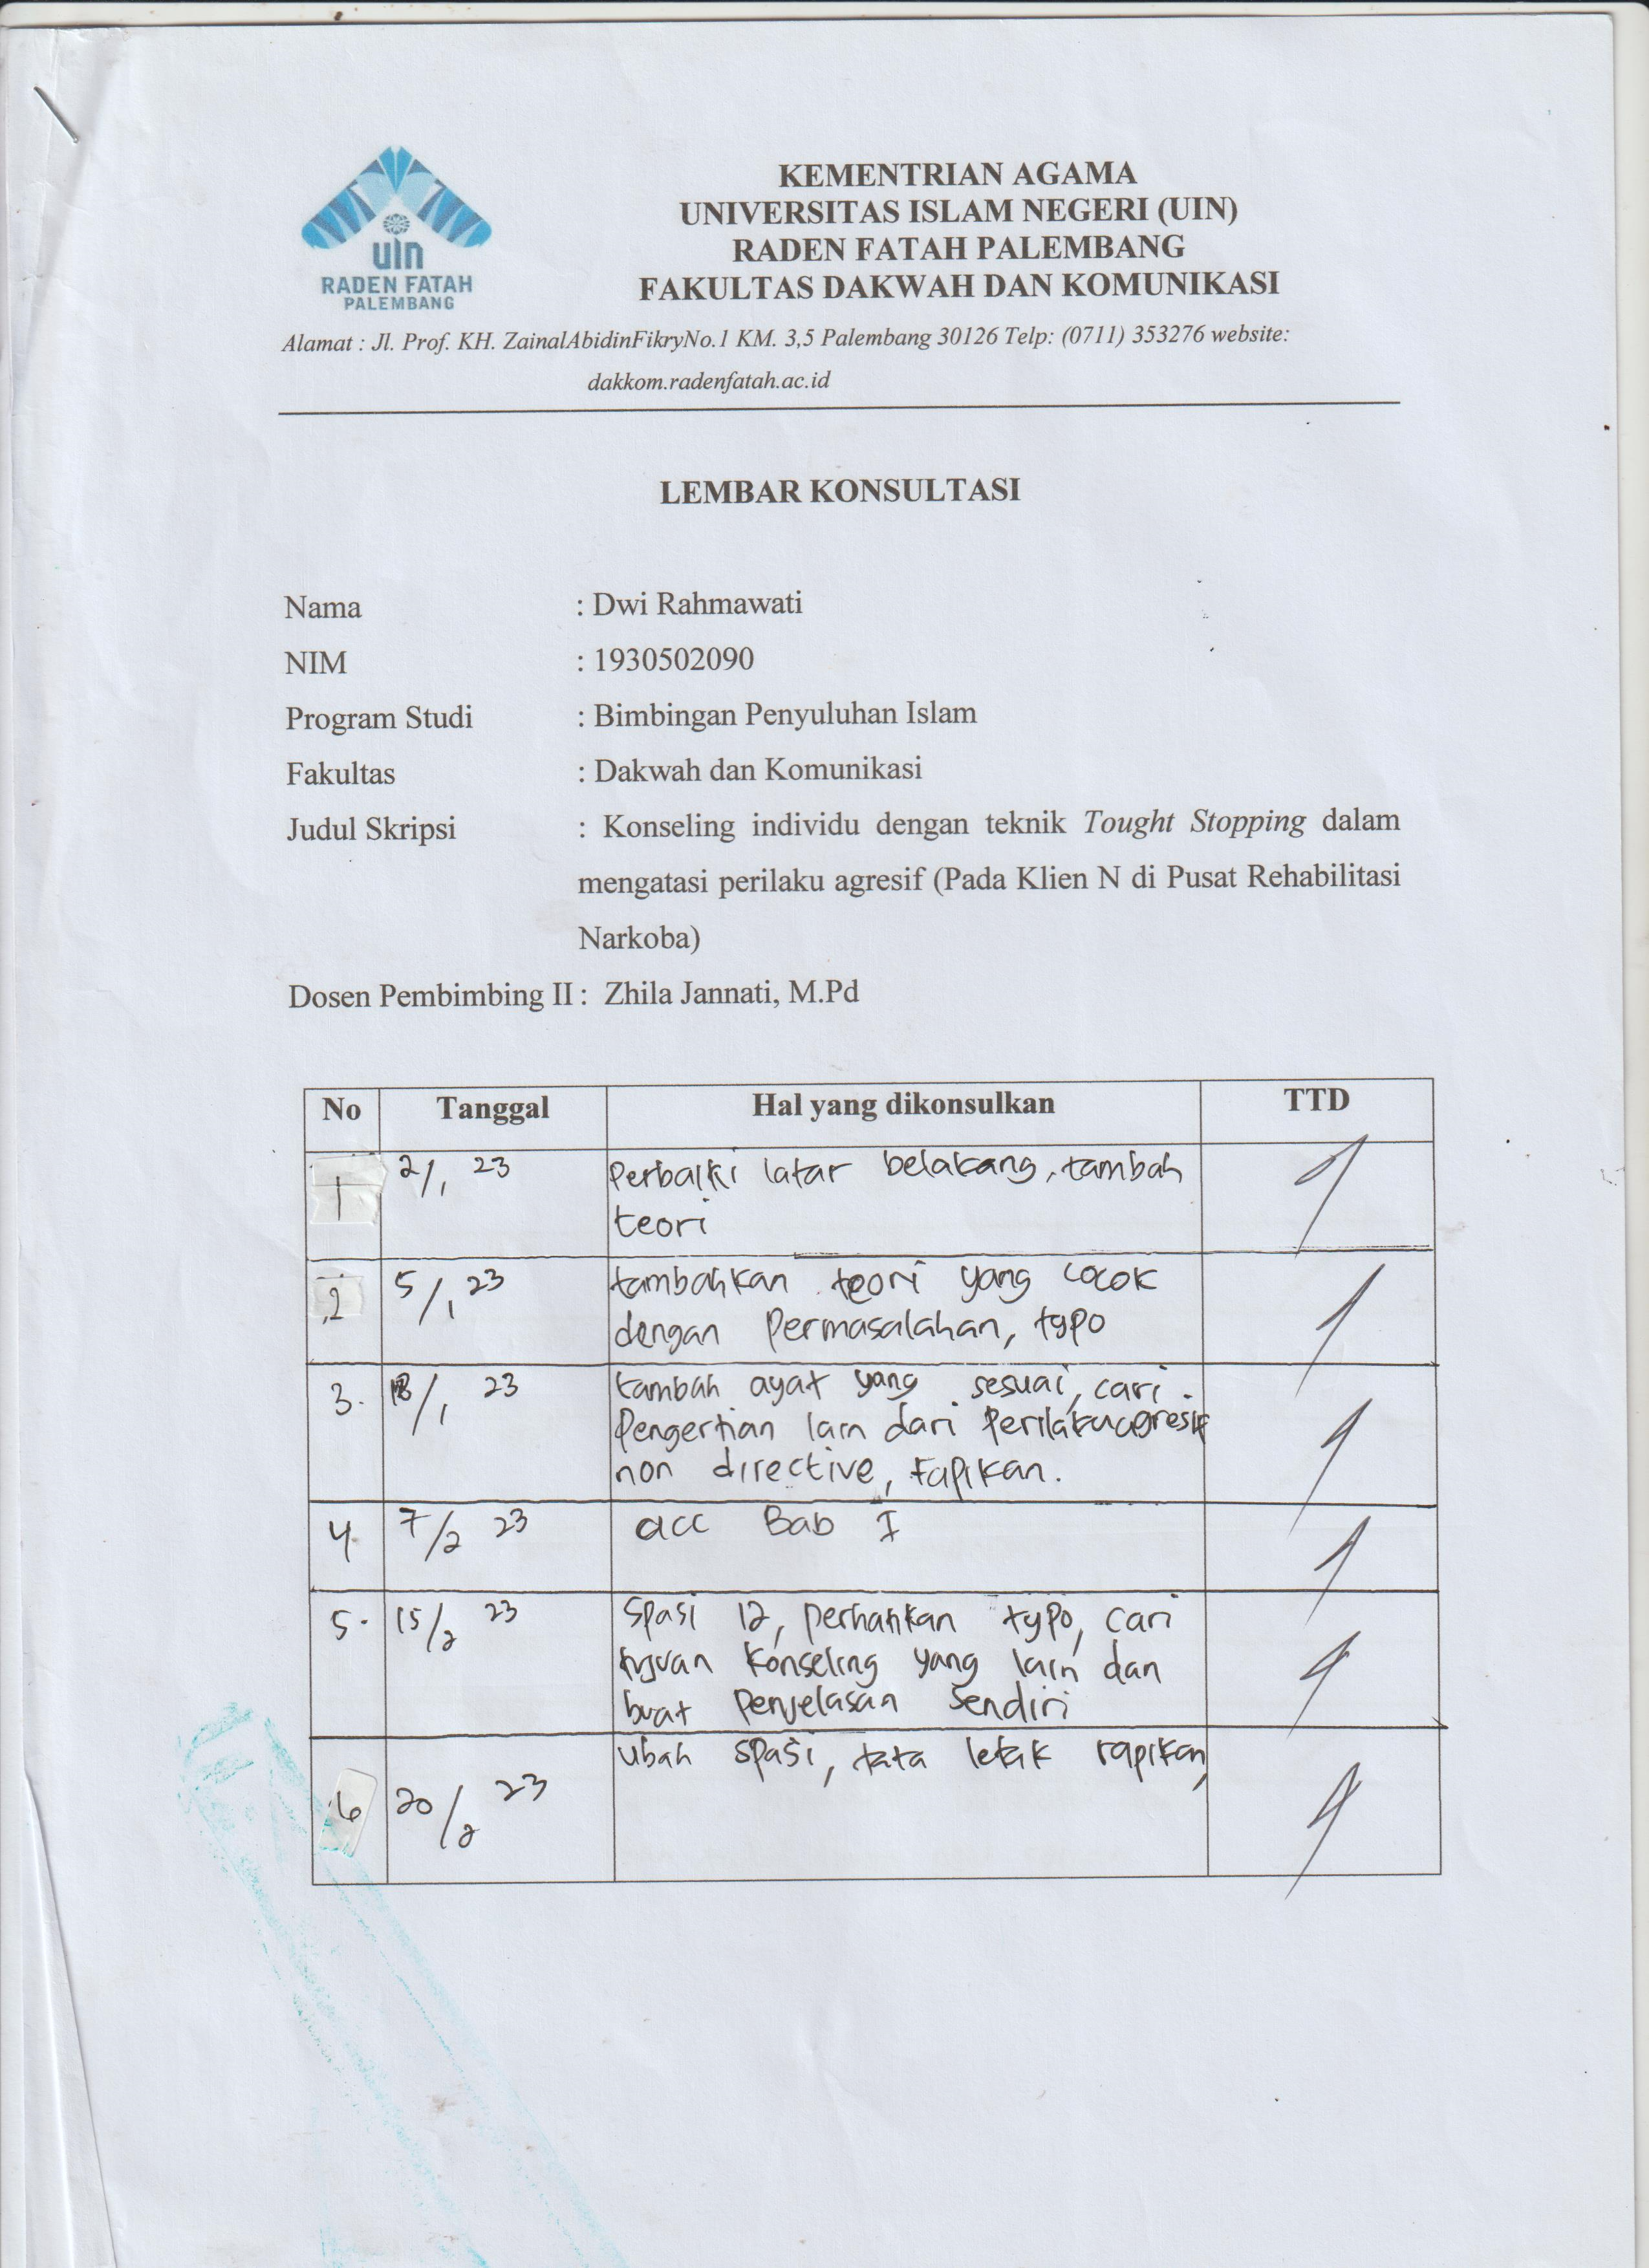 uin
RADEN FATAH
PALEMBANG
KEMENTRIAN AGAMA
UNIVERSITAS ISLAM NEGERI (UIN)
RADEN FATAH PALEMBANG
FAKULTAS DAKWAH DAN KOMUNIKASI
Alamat : Jl. Prof. KH. ZainalAbidinFikryNo.1 KM. 3,5 Palembang 30126 Telp: (0711) 353276 website:
dakkom.radenfatah.ac.id
LEMBAR KONSULTASI
Nama : Dwi Rahmawati
NIM : 1930502090
Program Studi : Bimbingan Penyuluhan Islam
Fakultas : Dakwah dan Komunikasi
Judul Skripsi : Konseling individu dengan teknik Tought Stopping dalam
mengatasi perilaku agresif (Pada Klien N di Pusat Rehabilitasi
Narkoba)
Dosen Pembimbing II : Zhila Jannati, M.Pd
No Tanggal Hal yang dikonsulkan TTD
1 2/1 23 Perbaiki latar belakang, tambah
teori
2 5/1 23 tambahkan teori yang cocok
dengan Permasalahan, typo
3. /1 23 tambah ayat yang sesuai, cari
Pengertian lain dari Perilaku agresif
non directive, rapikan.
4. 7/2 23 acc Bab I
5. 15/2 23 Spasi 12, perhatikan typo, cari
tujuan konseling yang lain dan
buat Penjelasan sendiri
6 20/2 23 Ubah spasi, tata letak rapikan,